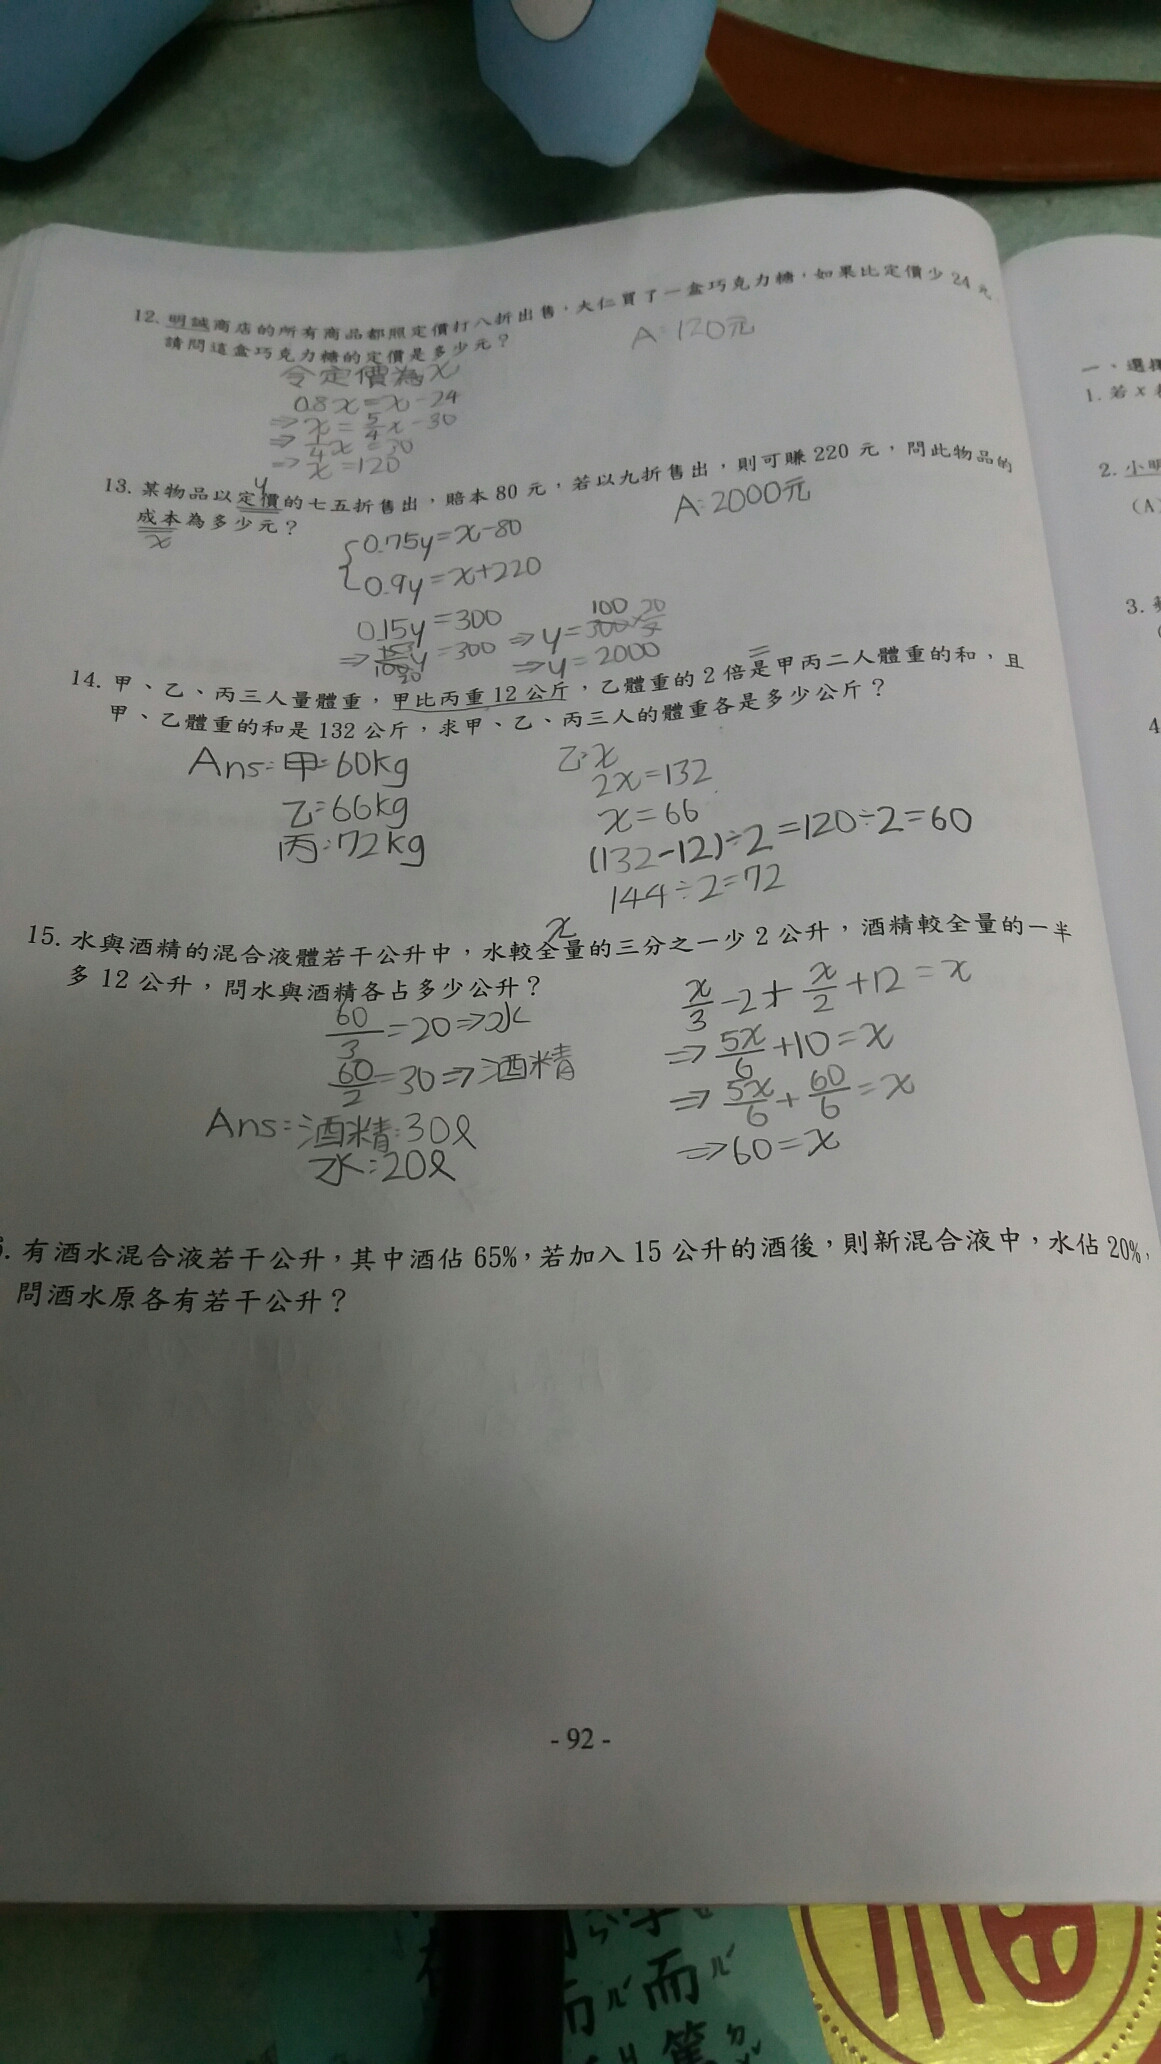 12. 明誠商店的所有商品都照定價打八折出售，大仁買了一盒巧克力糖，如果比定價少 24 元
請問這盒巧克力糖的定價是多少元？
A: 120元
令定價為x
0.8x=x-24
⇒ x = 5/4 x - 30
⇒ 1/4 x = 30
⇒ x = 120
y
13. 某物品以定價的七五折售出，賠本 80 元，若以九折售出，則可賺 220 元，問此物品的
成本為多少元？
x
A: 2000元
0.75y=x-80
0.9y=x+220
0.15y=300
⇒ 15/100 y = 300
20
⇒ y = 300 × 20/3
100
⇒ y = 2000
=
14. 甲、乙、丙三人量體重，甲比丙重 12 公斤，乙體重的 2 倍是甲丙二人體重的和，且
甲、乙體重的和是 132 公斤，求甲、乙、丙三人的體重各是多少公斤？
Ans: 甲=60kg
乙=66kg
丙:72kg
乙:x
2x=132
x=66
(132-12)÷2=120÷2=60
144÷2=72
x
15. 水與酒精的混合液體若干公升中，水較全量的三分之一少 2 公升，酒精較全量的一半
多 12 公升，問水與酒精各占多少公升？
60/3=20⇒水
60/2=30⇒酒精
Ans: 酒精:30ℓ
水:20ℓ
x/3-2+x/2+12=x
⇒ 5x/6+10=x
⇒ 5x/6+60/6=x
⇒60=x
. 有酒水混合液若干公升，其中酒佔 65%，若加入 15 公升的酒後，則新混合液中，水佔 20%，
問酒水原各有若干公升？
- 92 -
一、選擇
1. 若 x
2. 小明
(A)
3.
4
而ㄦˊ而ㄦˊ
篤